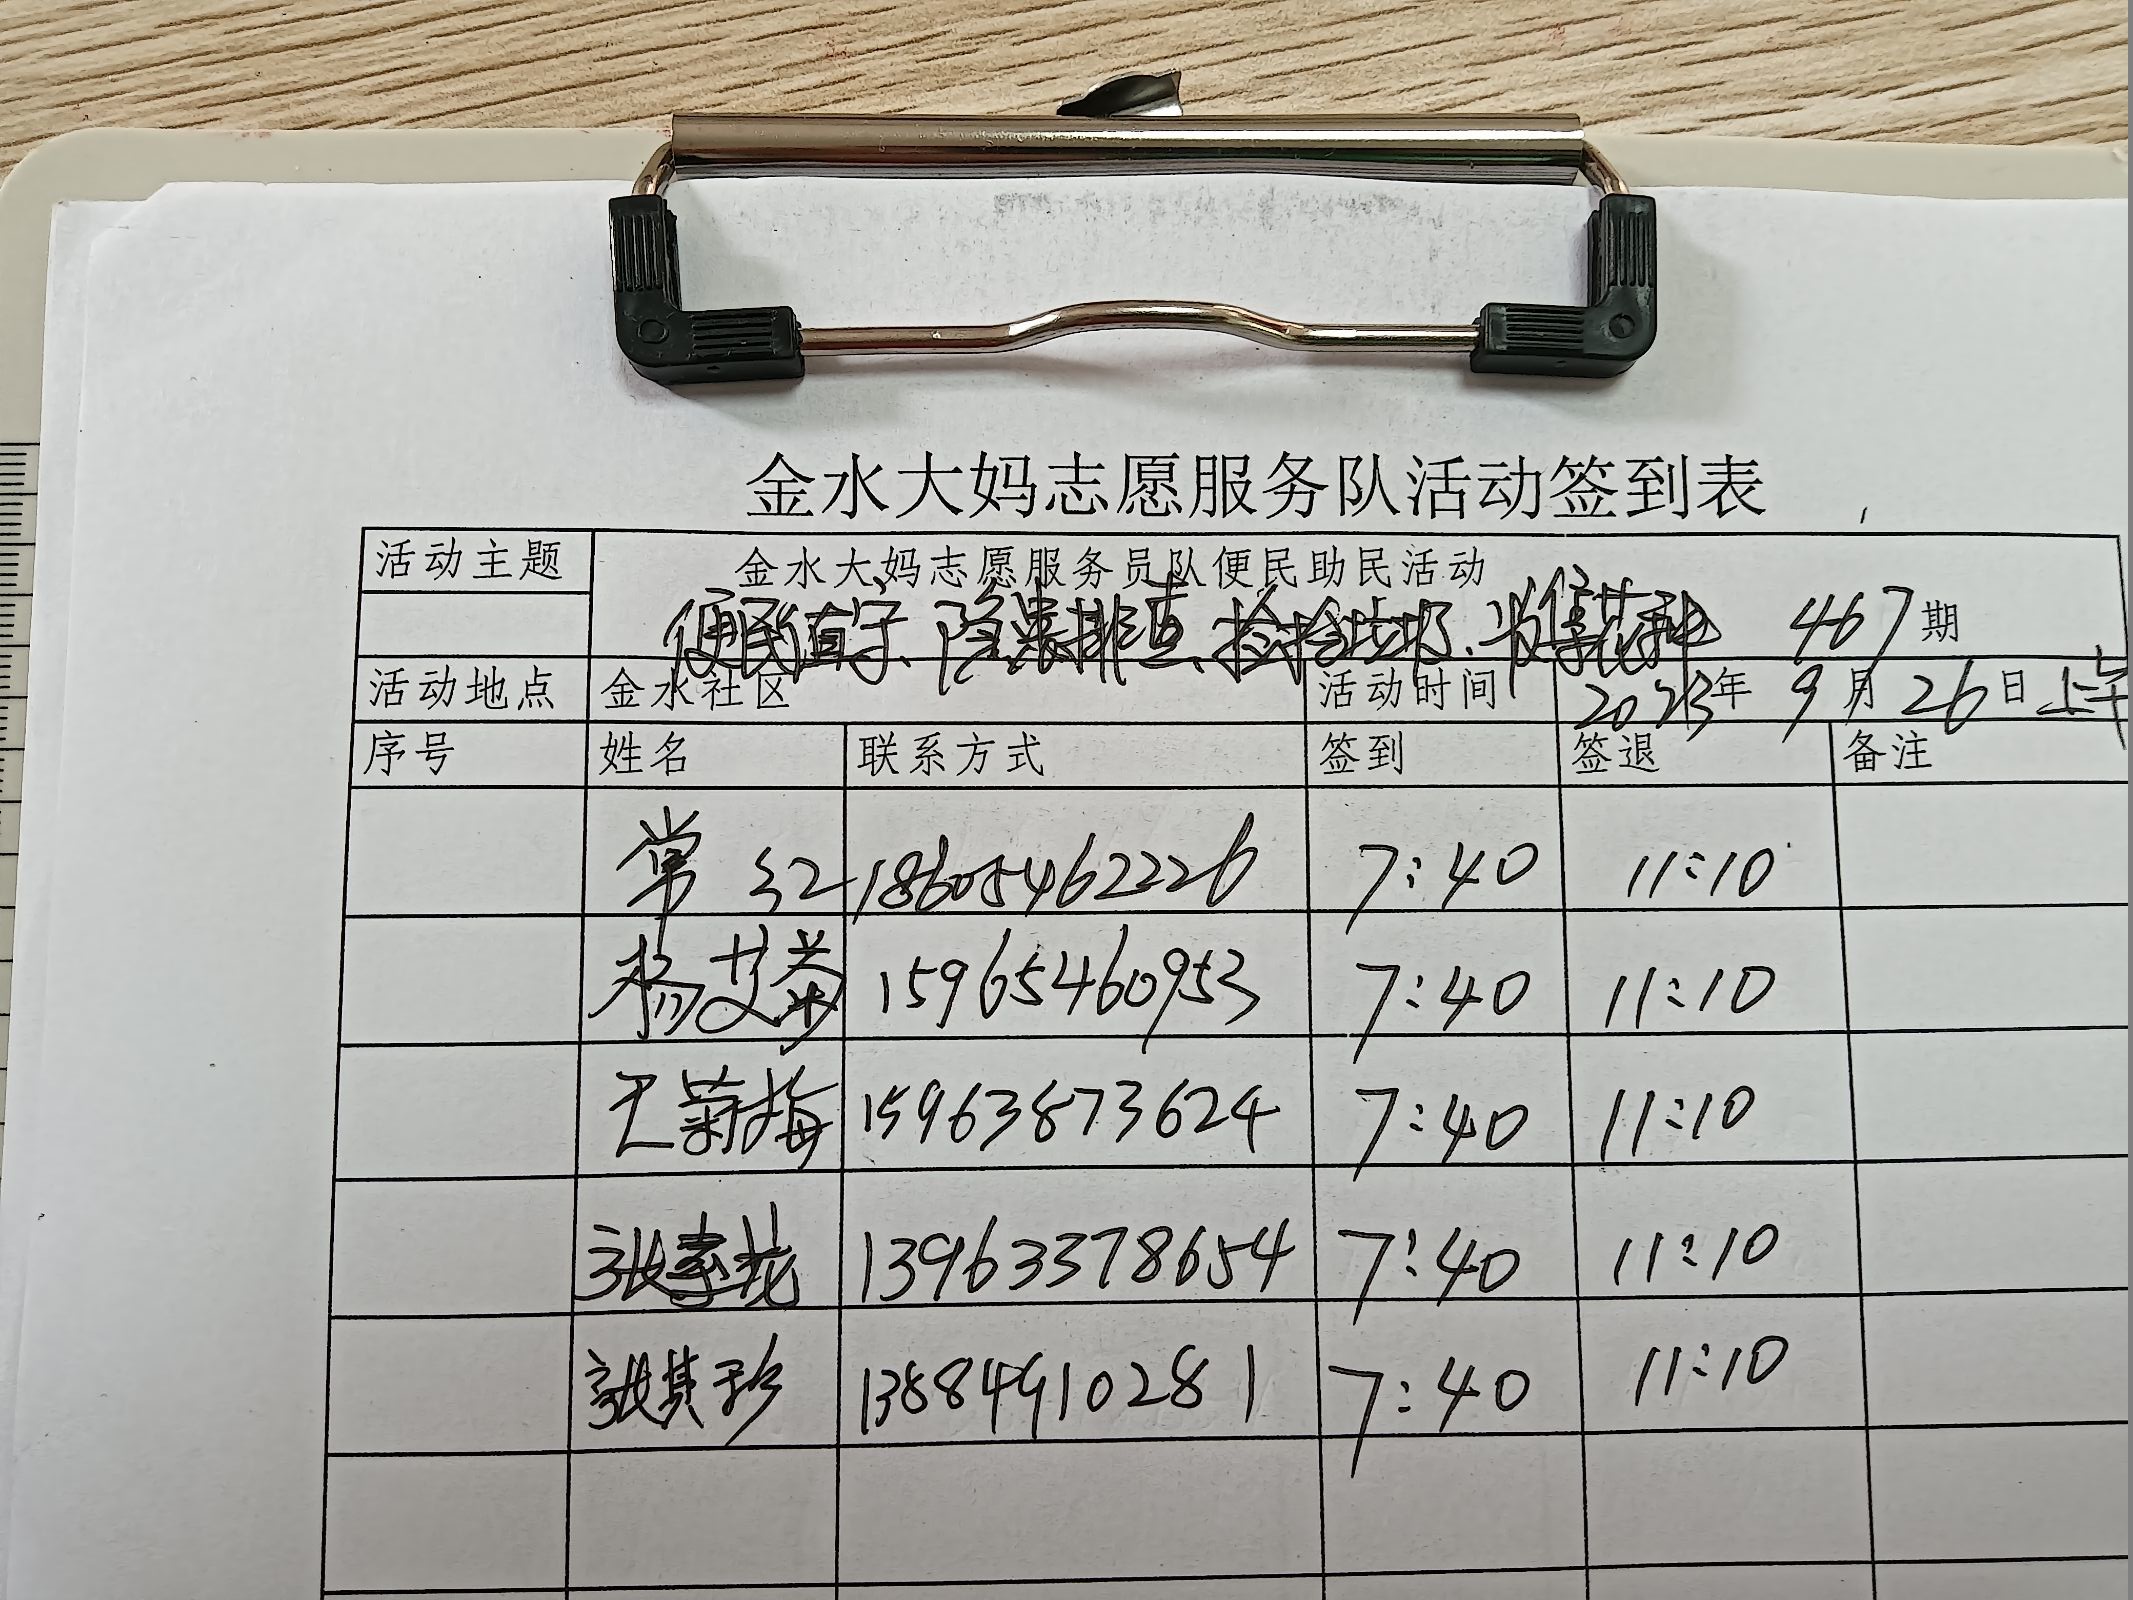 金水大妈志愿服务队活动签到表
活动主题 金水大妈志愿服务员队便民助民活动
便民值守、隐患排查、捡拾垃圾、收集花种 467期
活动地点 金水社区 活动时间 2023年9月26日上午
序号 姓名 联系方式 签到 签退 备注
常红 18605462226 7:40 11:10
杨艾芬 15965460953 7:40 11:10
王菊梅 15963873624 7:40 11:10
张 13963378654 7:40 11:10
张其珍 13884910281 7:40 11:10